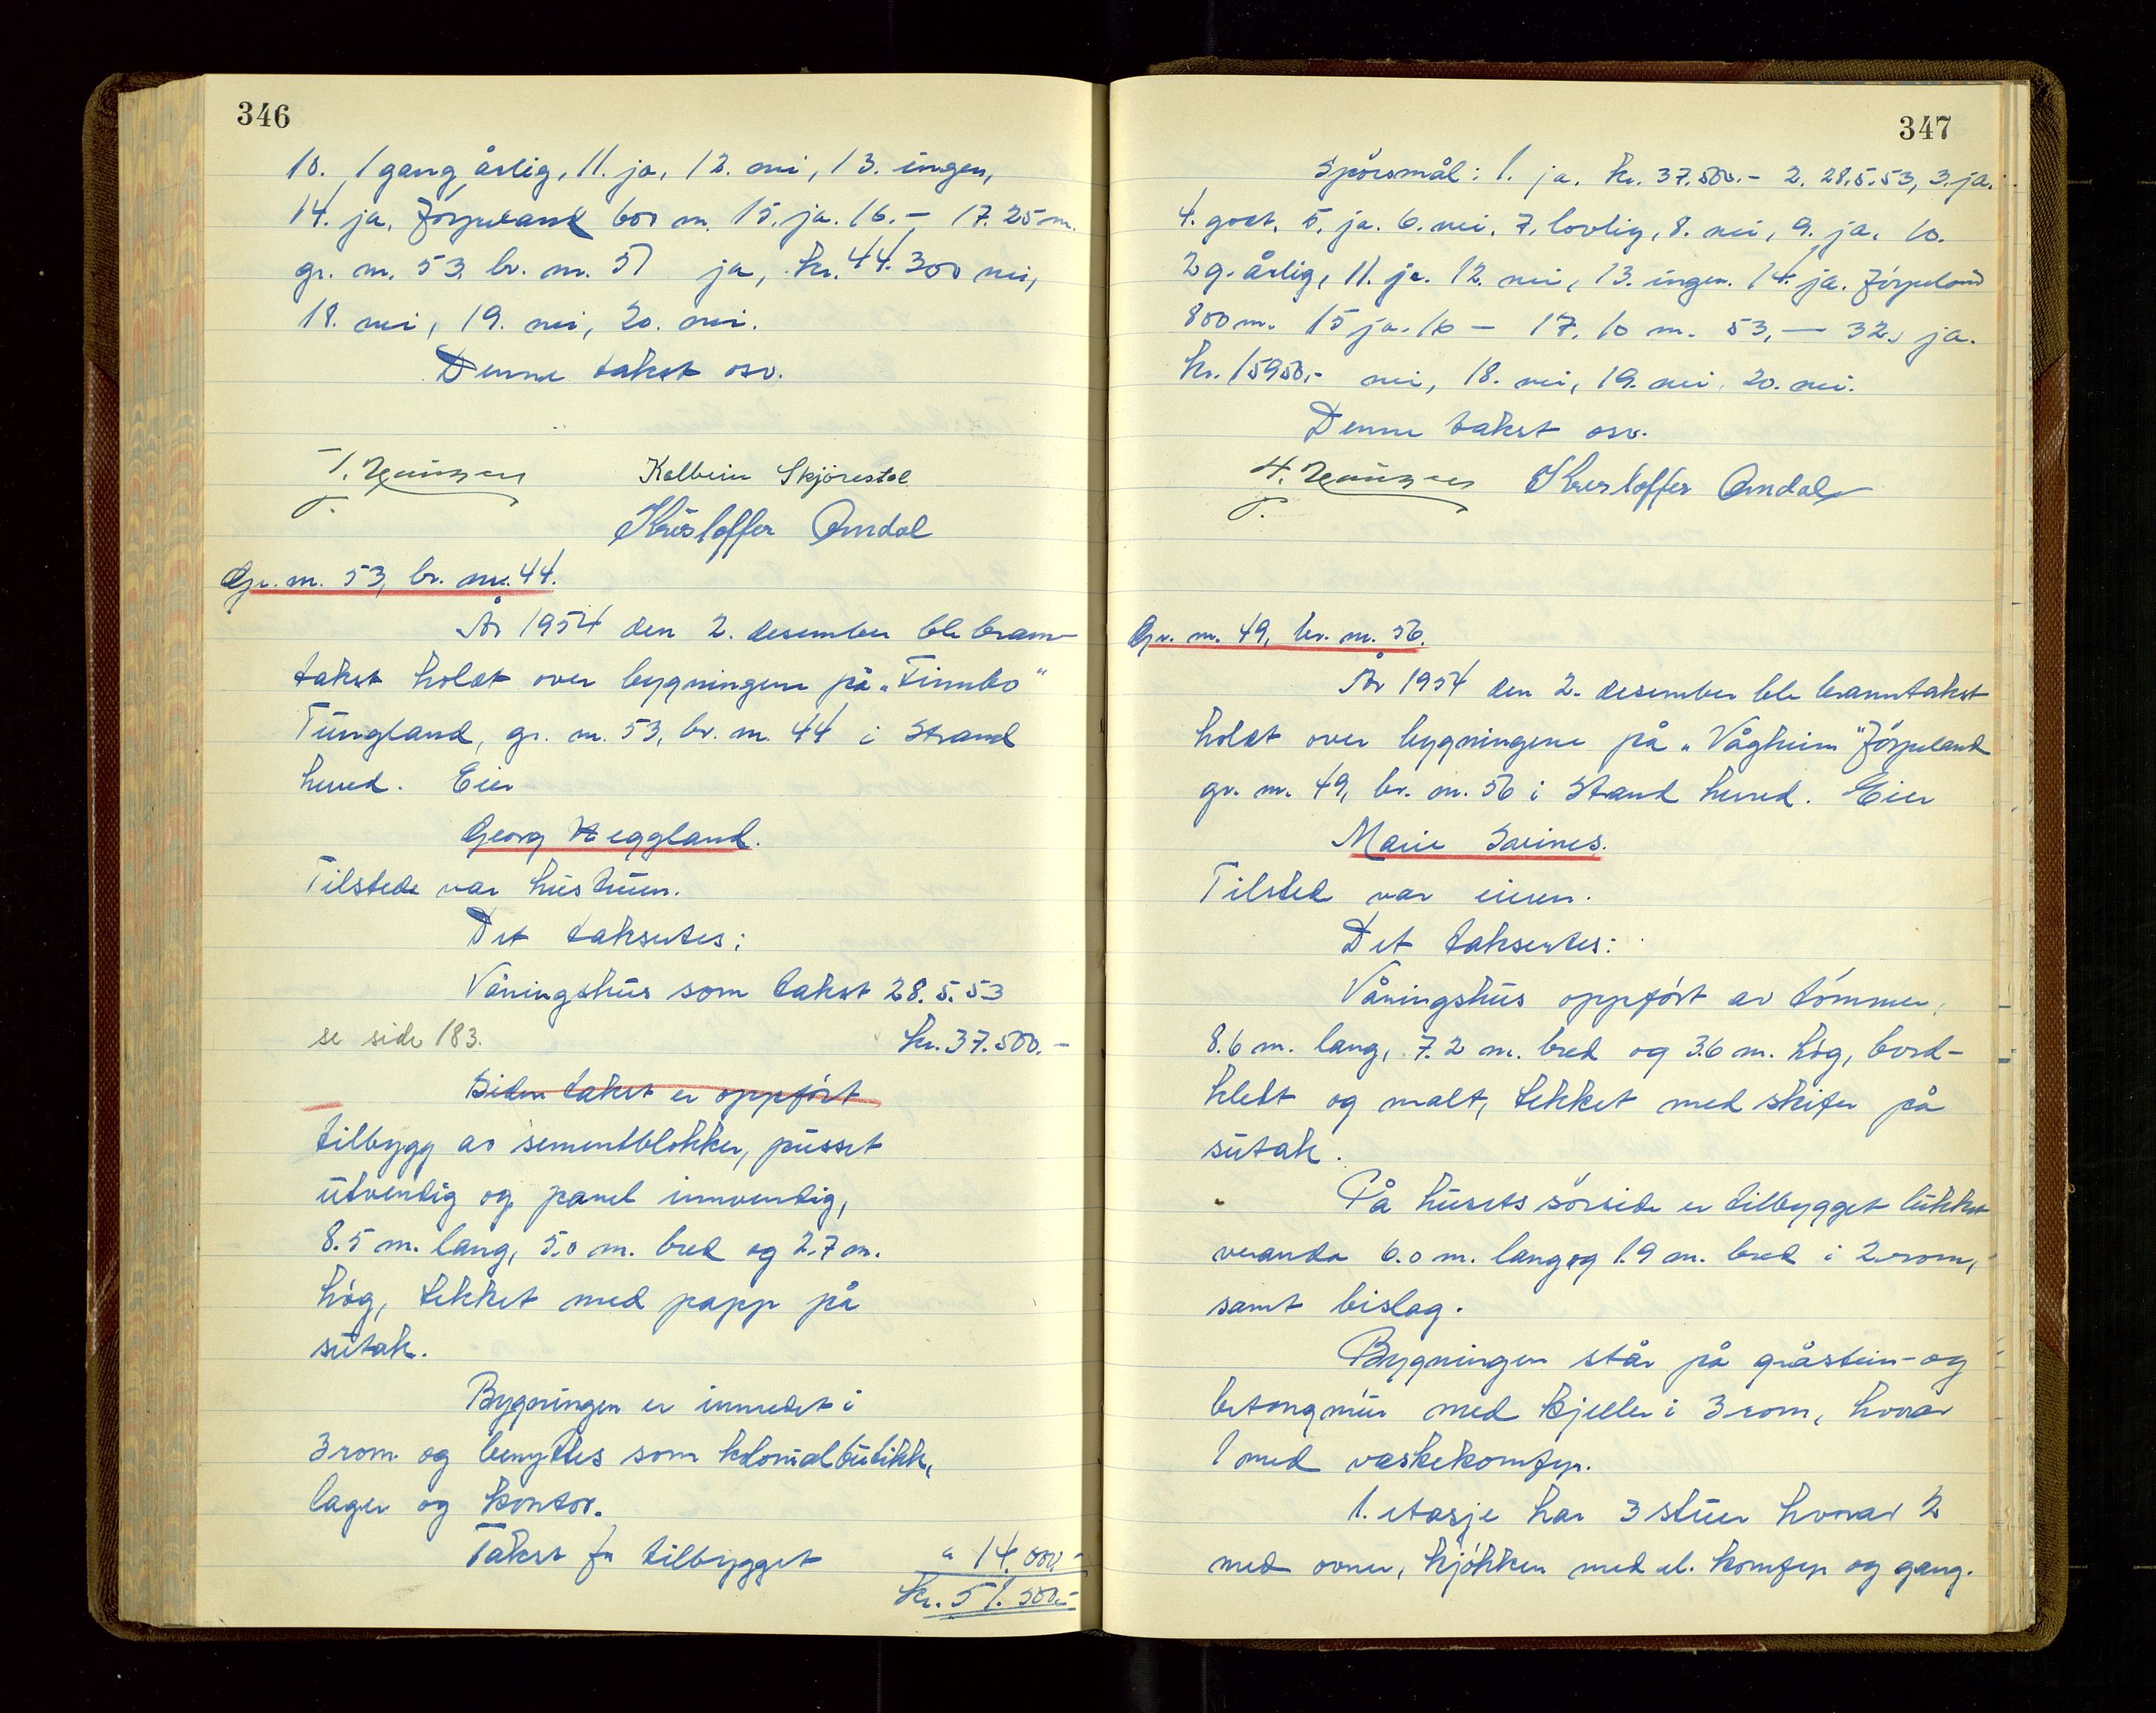 346
10. 1 gang årlig, 11. ja, 12. nei, 13. ingen,
14. ja, Jørpeland 600 m. 15. ja. 16. – 17. 25 m.
gr. nr. 53, br. nr. 51 ja, kr. 44.300 nei,
18. nei, 19. nei, 20. nei.
Denne takst osv.
Kolbein Skjørestad
Kristoffer Omdal
Gr. nr. 53, br. nr. 44.
År 1954 den 2. desember ble brann-
takst holdt over bygningene på „Finnbo"
Tungland, gr. nr. 53, br. nr. 44 i Strand
herred. Eier
Georg Heggland.
Tilstede var hustruen.
Det takseres:
Våningshus som takst 28.5.53
se side 183. kr. 37.500.–
Siden takst er oppført
tilbygg av sementblokker, pusset
utvendig og panel innvendig,
8.5 m. lang, 5.0 m. bred og 2.7 m.
høg, tekket med papp på
sutak.
Bygningen er innredet i
3 rom og benyttes som kolonialbutikk,
lager og kontor.
Takst for tilbygget " 14.000.–
kr. 51.500.–
347
Spørsmål: 1. ja. kr. 37.500.– 2. 28.5.53, 3. ja.
4. godt, 5. ja. 6. nei. 7. lovlig, 8. nei, 9. ja, 10.
2 g. årlig, 11. ja. 12. nei, 13. ingen. 14. ja. Jørpeland
800 m. 15 ja. 16 – 17. 10 m. 53, – 32, ja.
kr. 15950.– nei, 18. nei, 19. nei, 20. nei.
Denne takst osv.
Kristoffer Omdal
Gr. nr. 49, br. nr. 56.
År 1954 den 2. desember ble branntakst
holdt over bygningene på „Vågheim" Jørpeland
gr. nr. 49, br. nr. 56 i Strand herred. Eier
Marie Svines.
Tilsted var eieren.
Det takseretes:
Våningshus oppført av tømmer,
8.6 m. lang, 7.2 m. bred og 3.6 m. høg, bord-
kledt og malt, tekket med skifer på
sutak.
På husets sørside er tilbygget lukket
veranda 6.0 m. lang og 1.9 m. bred i 2 rom,
samt bislag.
Bygningen står på gråstein- og
betongmur med kjeller i 3 rom, hvorav
1 med vaskekomfyr.
1. etasje har 3 stuer hvorav 2
med ovner, kjøkken med el. komfyr og gang.